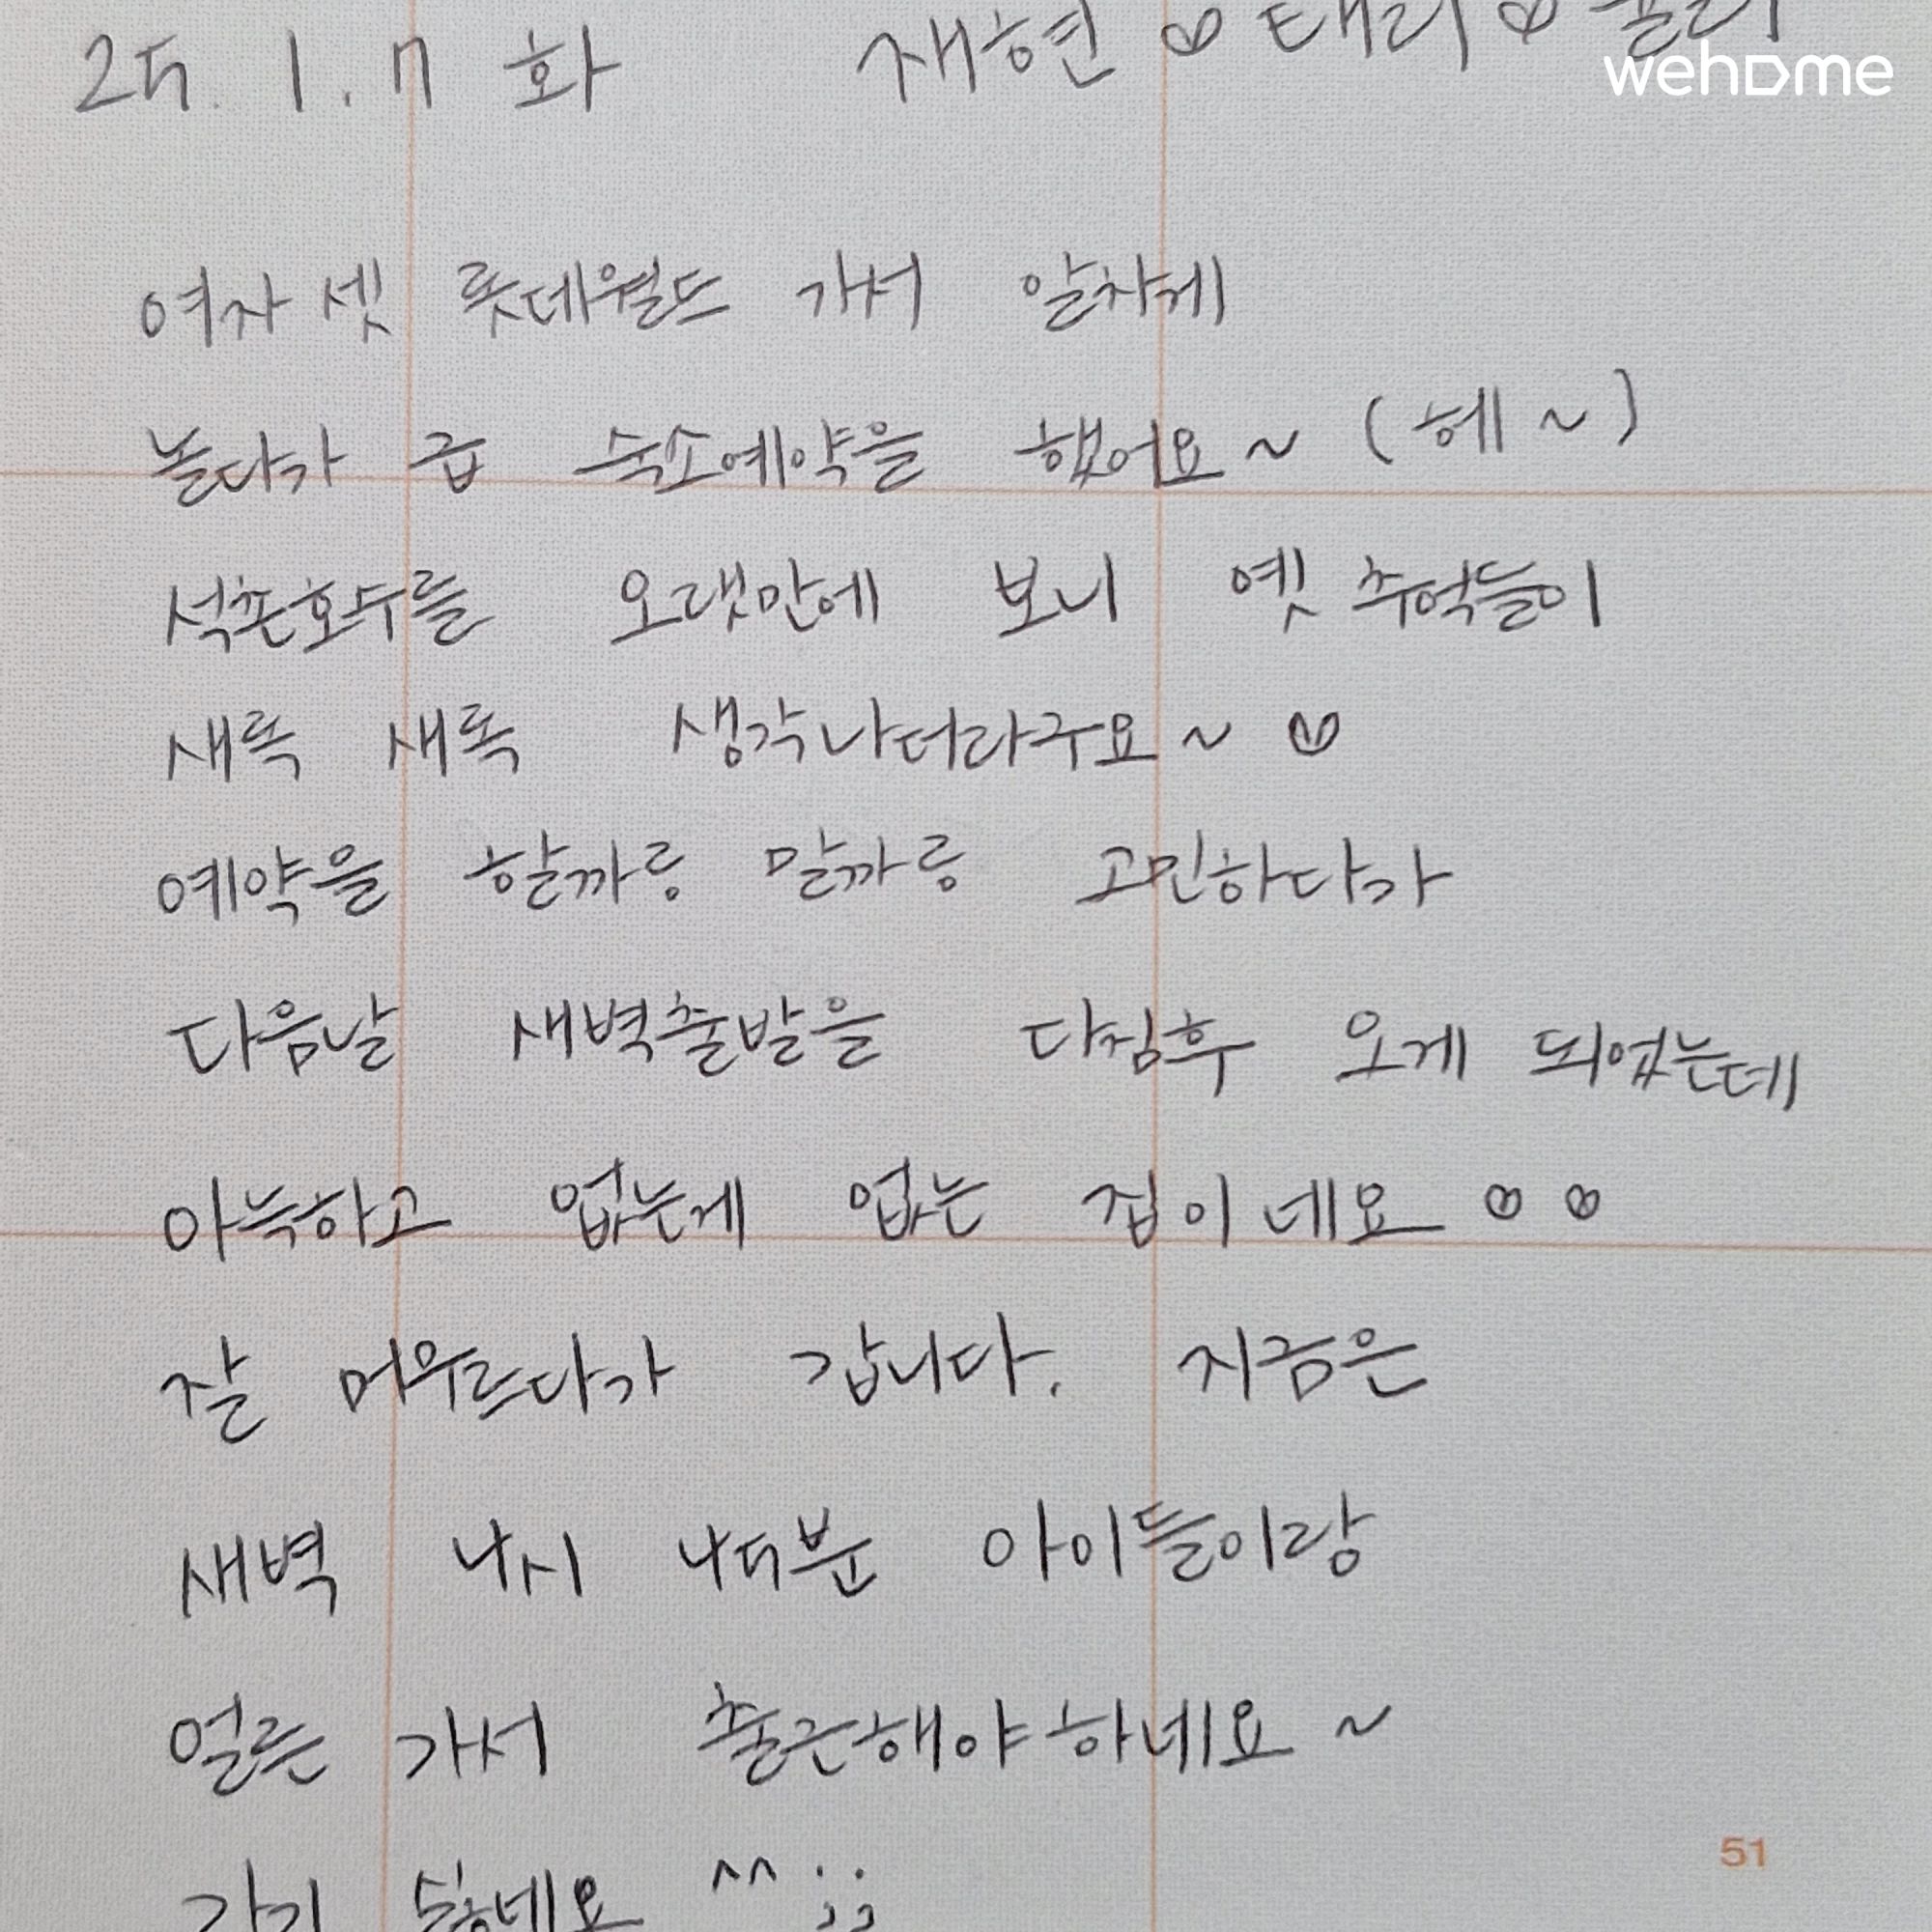 25. 1. 7 화 재현 ♡ 태리 ♡
wehome
여자셋 롯데월드 가서 알차게
놀다가 급 숙소예약을 했어요~ (헤~)
석촌호수를 오랫만에 보니 옛 추억들이
새록 새록 생각나더라구요~ ♡
예약을 할까릉 말까릉 고민하다가
다음날 새벽출발을 다짐후 오게 되었는데
아늑하고 없는게 없는 집이네요 ♡♡
잘 머무르다가 갑니다. 지금은
새벽 4시 45분 아이들이랑
얼른 가서 출근해야하네요~
가기 싫네요 ^^;;
51